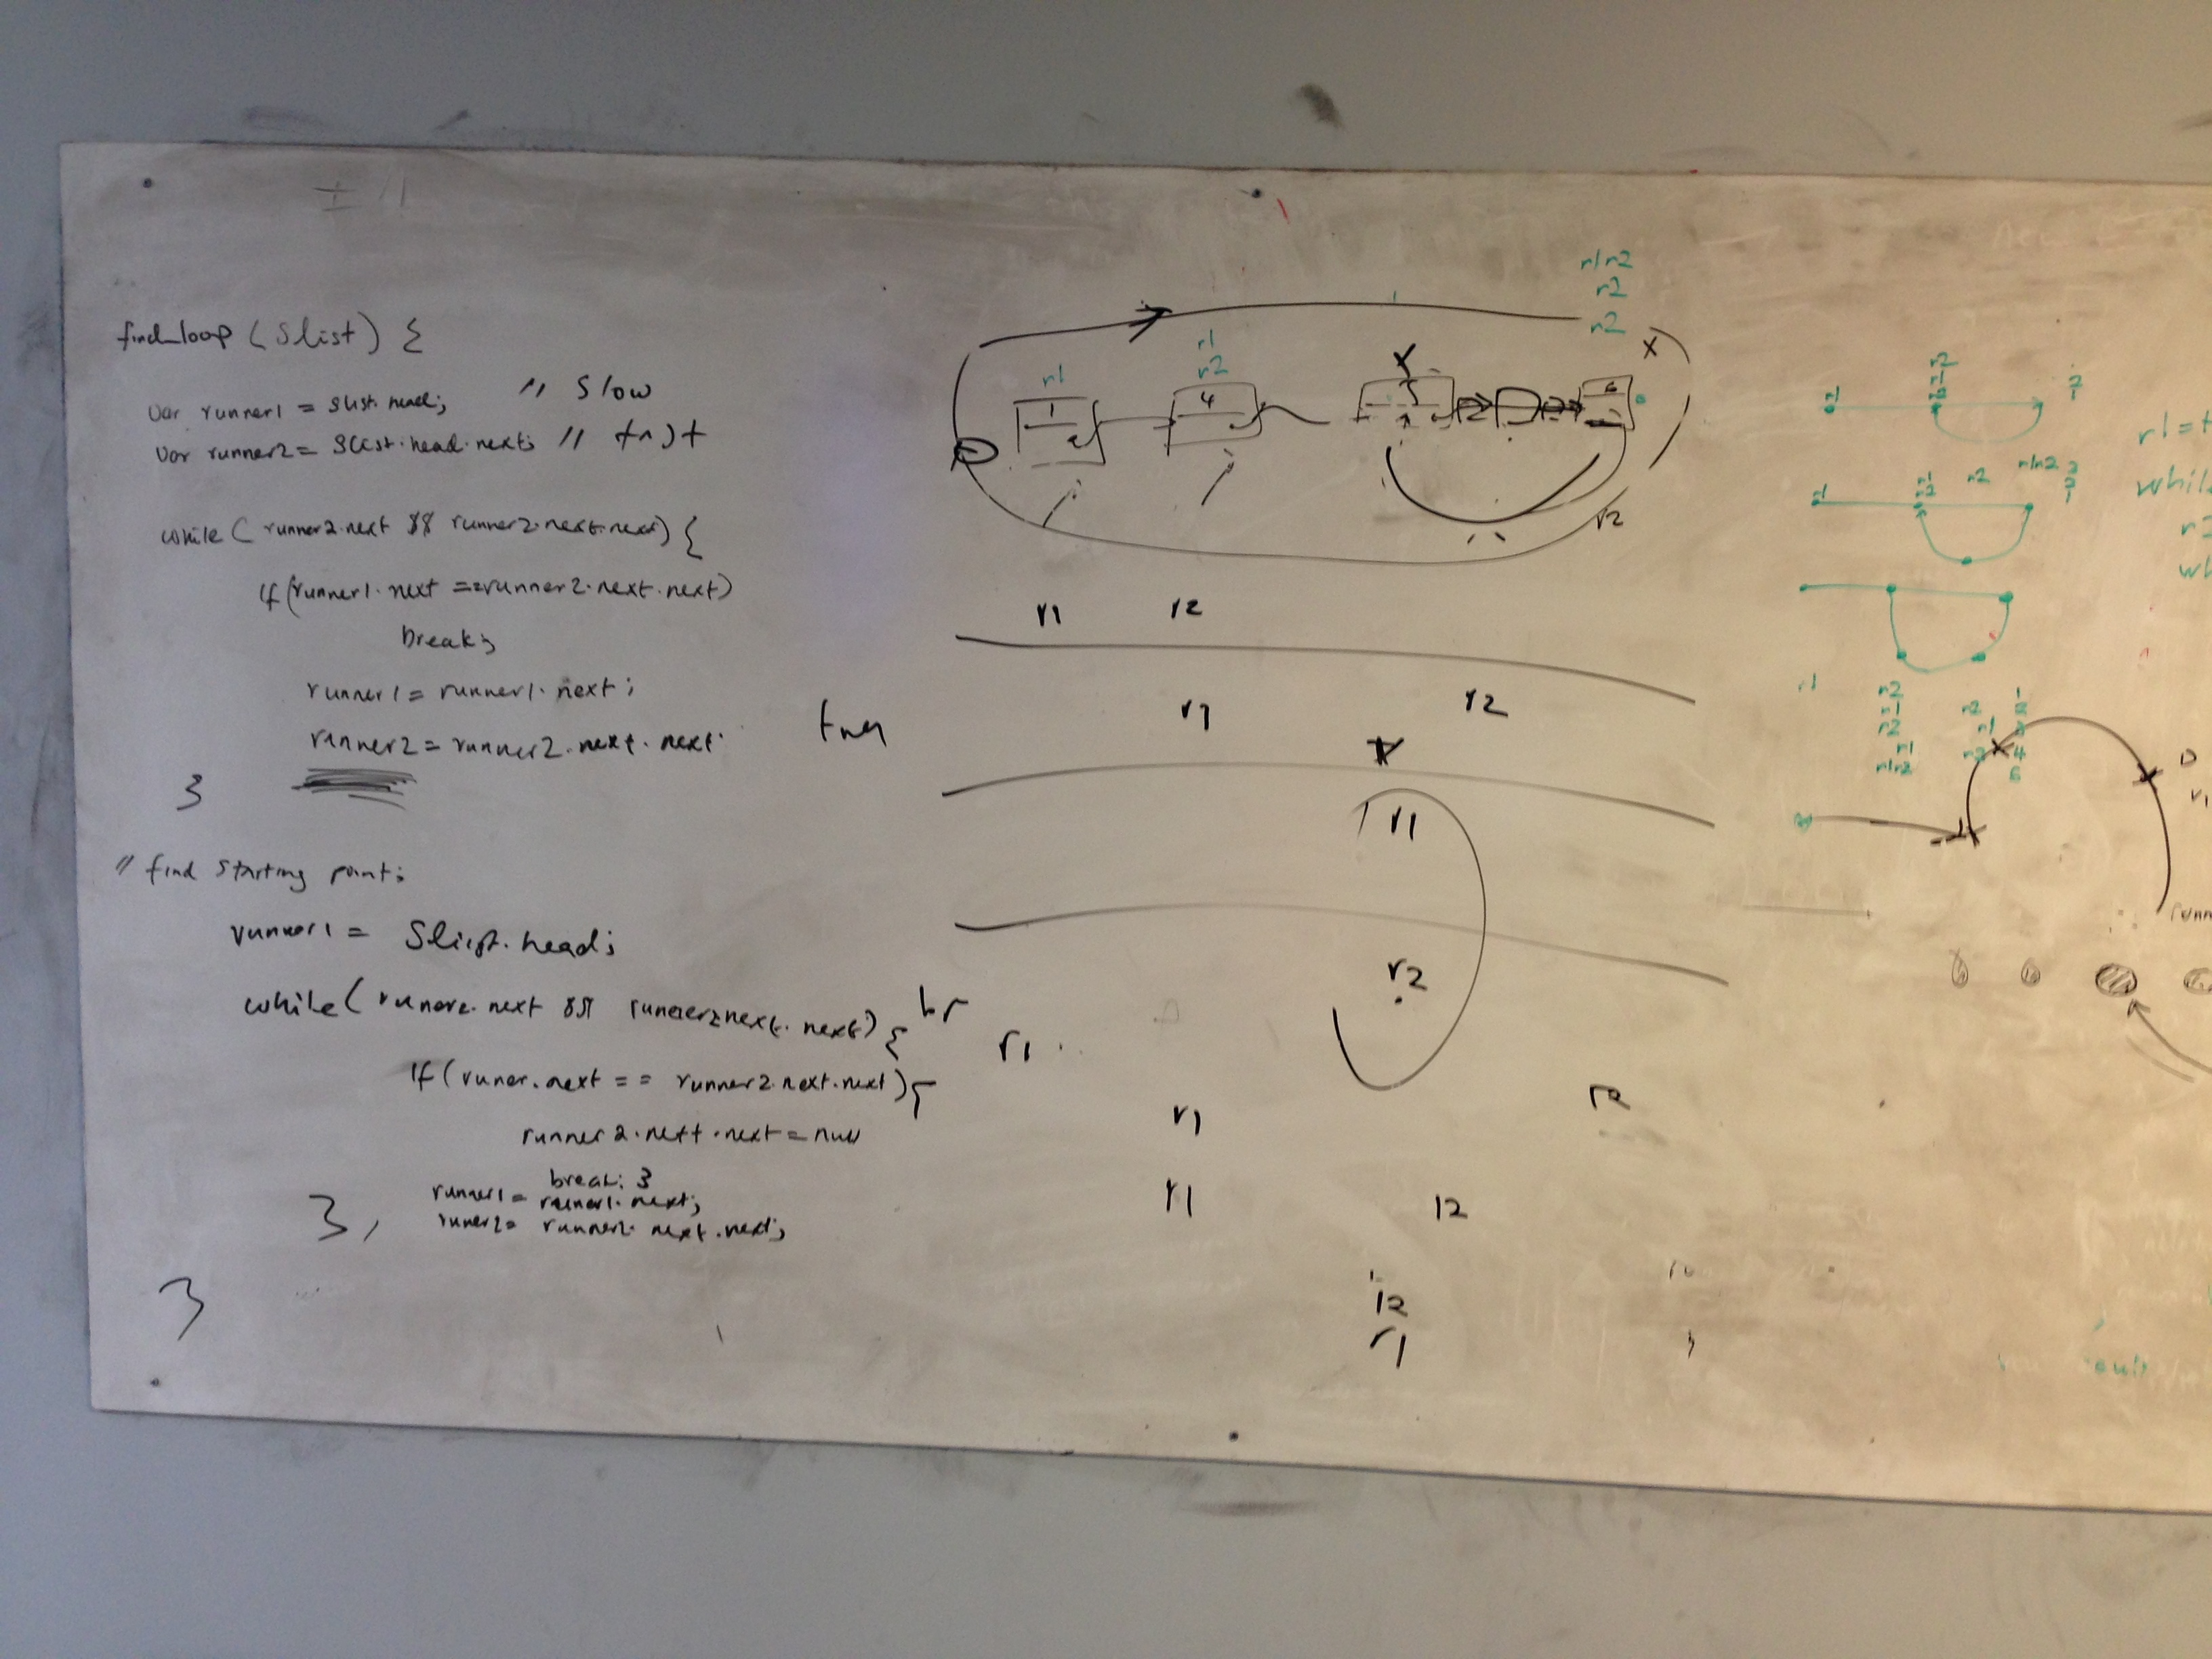 find_loop (Slist) {
var runner1 = slist.head; // Slow
var runner2 = slist.head.next; // fast
while ( runner2.next && runner2.next.next) {
if (runner1.next == runner2.next.next)
break;
runner1 = runner1.next ;
runner2 = runner2.next.next
}
// find starting point;
runner1 = Slist.head;
while ( runner2.next && runner2next.next) {
If ( runer.next == runner2.next.next) {
runner2.next.next = null
break; }
runner1 = runner1.next;
runer2= runner2.next.next;
},
}
r1r2
r2
r2
r1
r1
r2
1
4
5
6
X
r2
r1 r2
r1 r2
r1
r2
br
r1
r1
r2
r1
r2
r1
r2
r1
r1
r2
r1
r1=
r1
r1
r2
r2
r1r2
3
2
1
whil
r1
r2
r1
r2
r1
r1r2
r2
r1
1
2
3
4
5